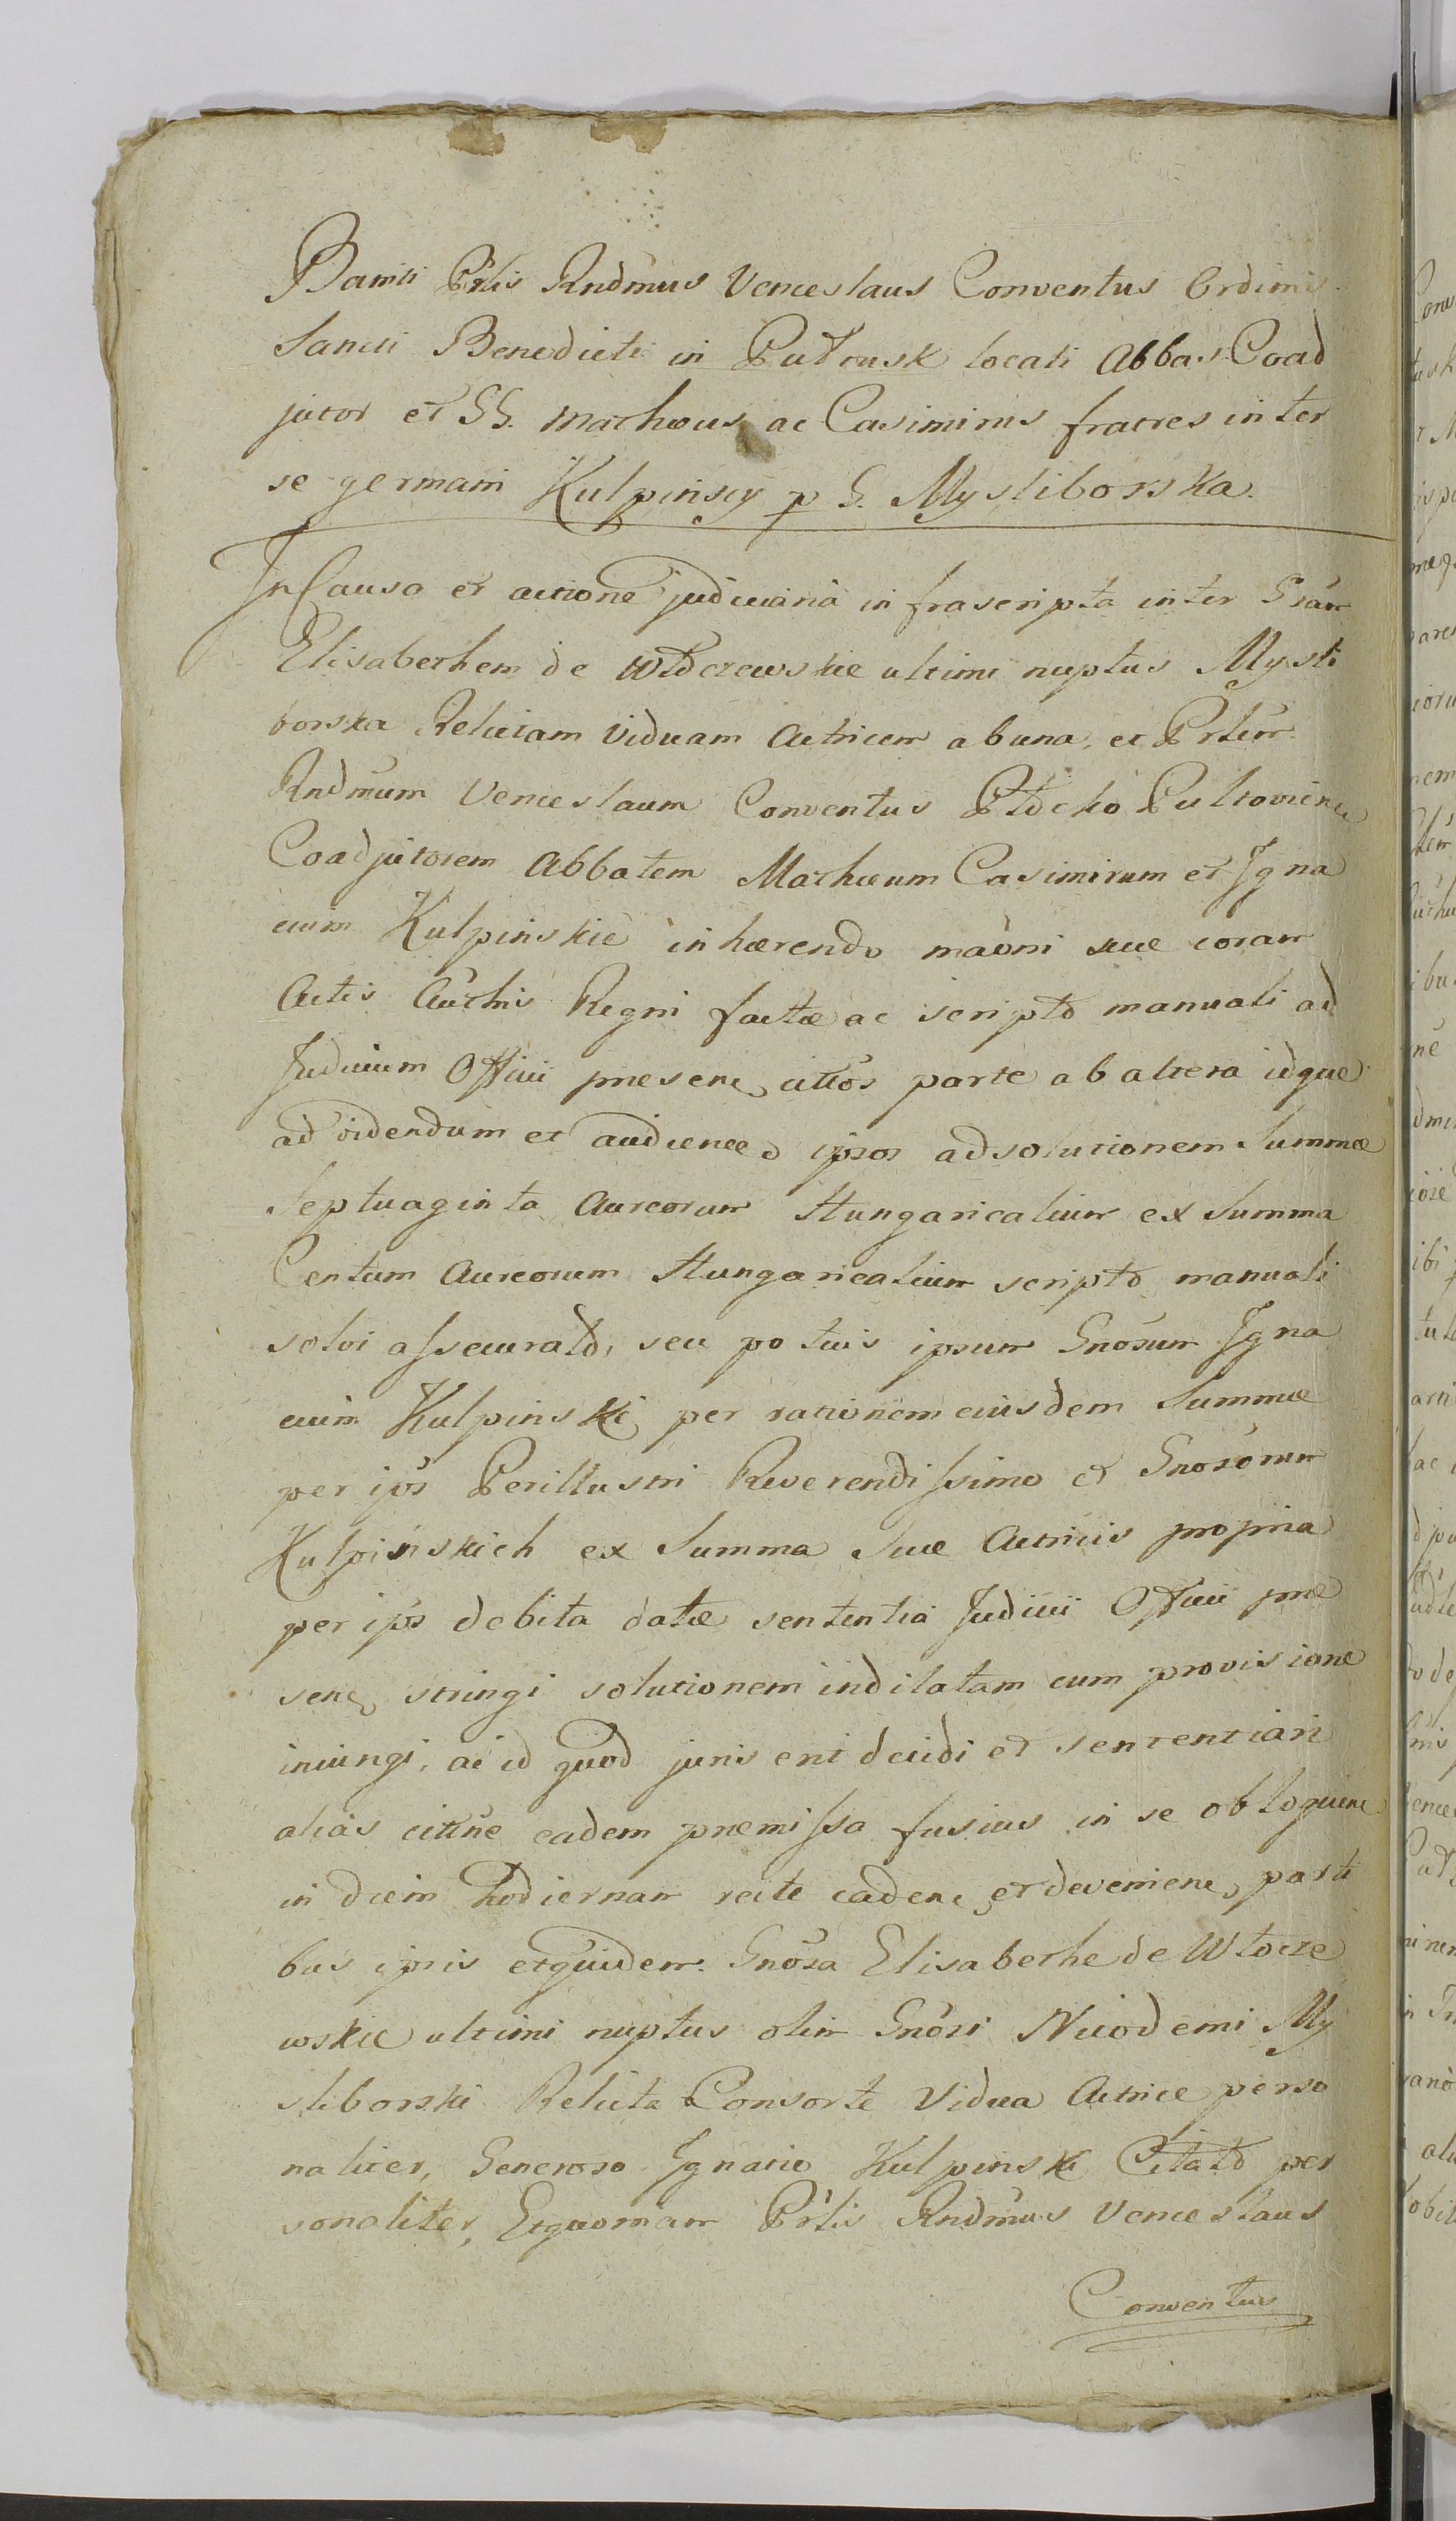 Banniti Prlis Rndmus Venceslaus Conventus Ordinis
Sancti Benedicti in Pułtusk locati Abbas Coad
jutor et GG. Mathæus ac Casimirus fratres inter
se germani Kulpinscy p G. Mysliborska.
In Causa et actione judiciaria infrascripta inter Gsam
Elisabethem de Wtdczewskie ultimi nuptus Mysli
borska Relictam Viduam Actricem ab una, et Prlem
Rndmum Venceslaum Conventus Ptdcko Pultovien
Coadjutorem Abbatem Mathæum Casimirum et Igna
cium Kulpinskie inhærendo maoni suæ coram
Actis Authis Regni factæ ac scripto manuali ad
Judicium Officii præsen, cittos parte ab altera idque
ad videndum et audiend ipsos ad solutionem Summæ
Septuaginta Aureorum Hungaricalium ex Summa
Centum Aureorum Hungaricalium scripto manuali
solvi assecurato, seu potius ipsum Gnosum Igna
cium Kulpinski per rationem eiusdem Summæ
per ips Perillustri Reverendissimo et Gnosorum
Kulpinskich ex Summa Suæ Actricis propria
per ips debita datæ sententia Judicii Officii præ
sen, stringi solutionem indilatam cum provisione
iniungi, ac id quod juris erit decidi et sententiari
alias cittne eadem præmissa fusius in se obloquen
in diem hodiernam recte caden, et devenien, parti
bus ipsis et quidem. Gnosa Elisabethe de Wtocze
wskie ultimi nuptus olim Gnosi Nicodemi My
sliborski Relicta Consorte Vidua Actrice perso
naliter, Generoso Ignatio Kulpinski Citato per
sonaliter, Et quoniam Prlis Rndmus Venceslaus
Conventus